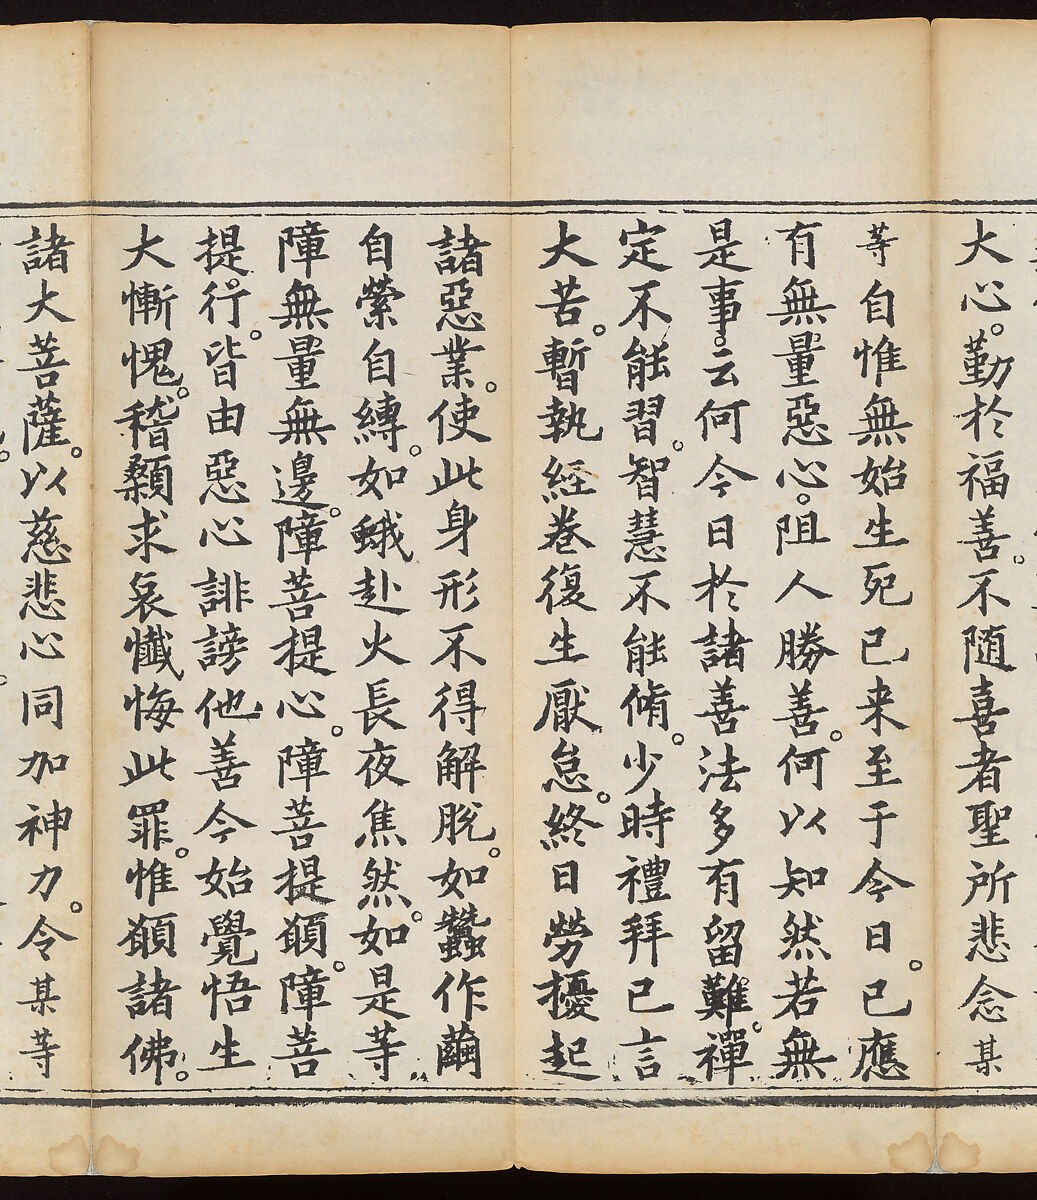 大心。勤於福善。不随喜者聖所悲念某
等自惟無始生死已来至于今日。已應
有無量惡心。阻人勝善。何以知然若無
是事。云何今日於諸善法多有留難。禪
定不能習。智慧不能脩。少時禮拜已言
大苦。暫執經卷復生厭怠。終日勞擾起
諸惡業。使此身形不得解脫。如蠶作繭
自縈自縛。如蛾赴火長夜焦然。如是等
障無量無邊。障菩提心。障菩提願。障菩
提行。皆由惡心誹謗他善今始覺悟生
大慚愧。稽顙求哀懺悔此罪。惟願諸佛。
諸大菩薩。以慈悲心同加神力。令某等